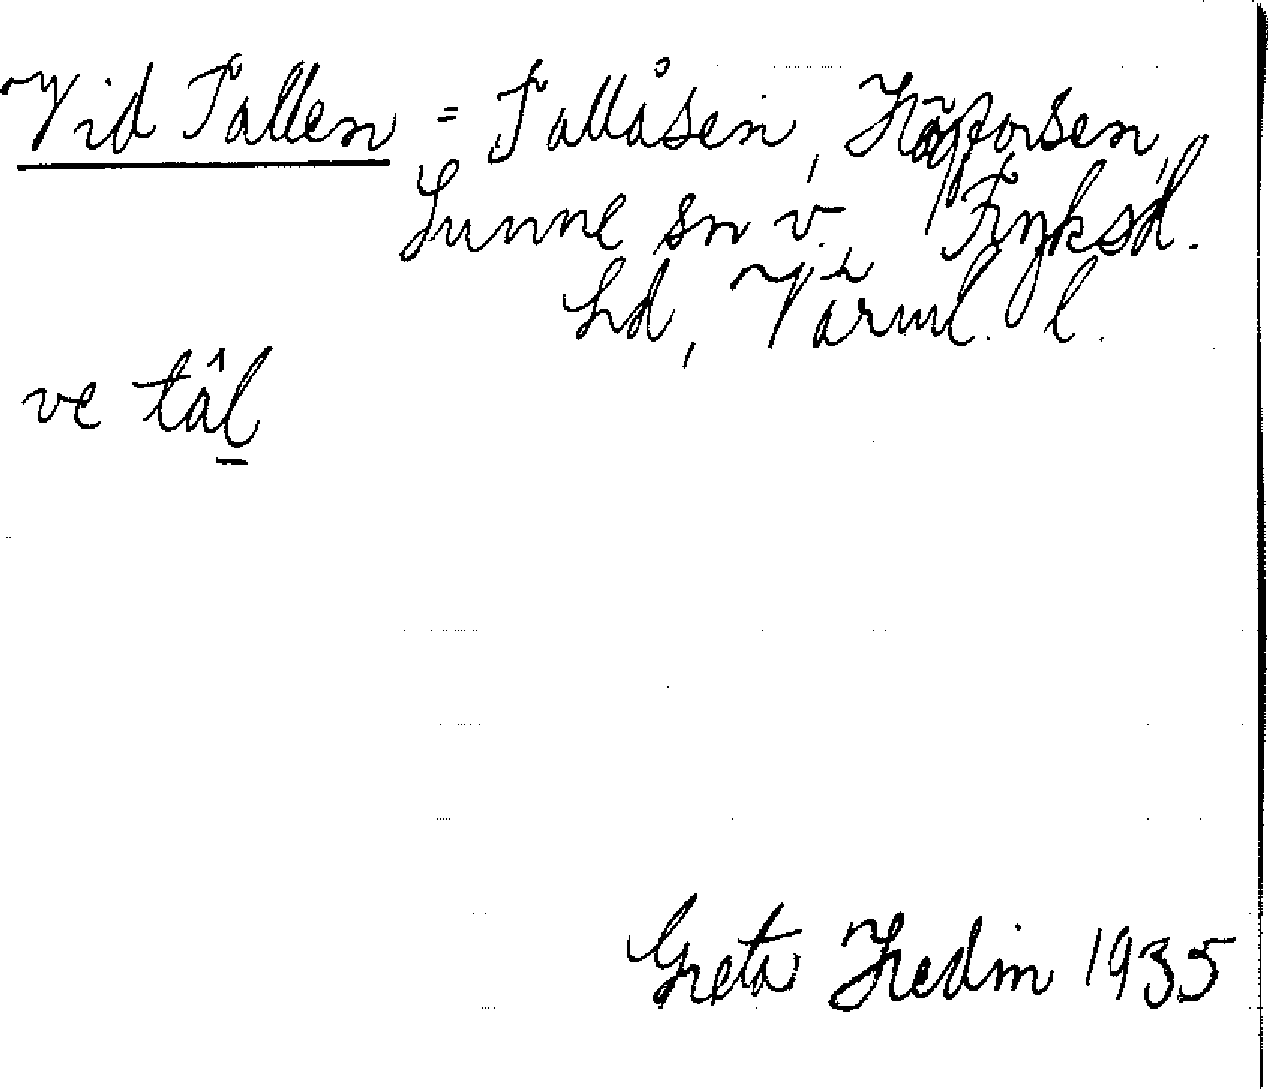 Vid Tallen = Tallåsen, Häggårsen,
Sunne sn v. Fryksd.
hd, Värml. l.
ve tâl
Greta Hedin 1935